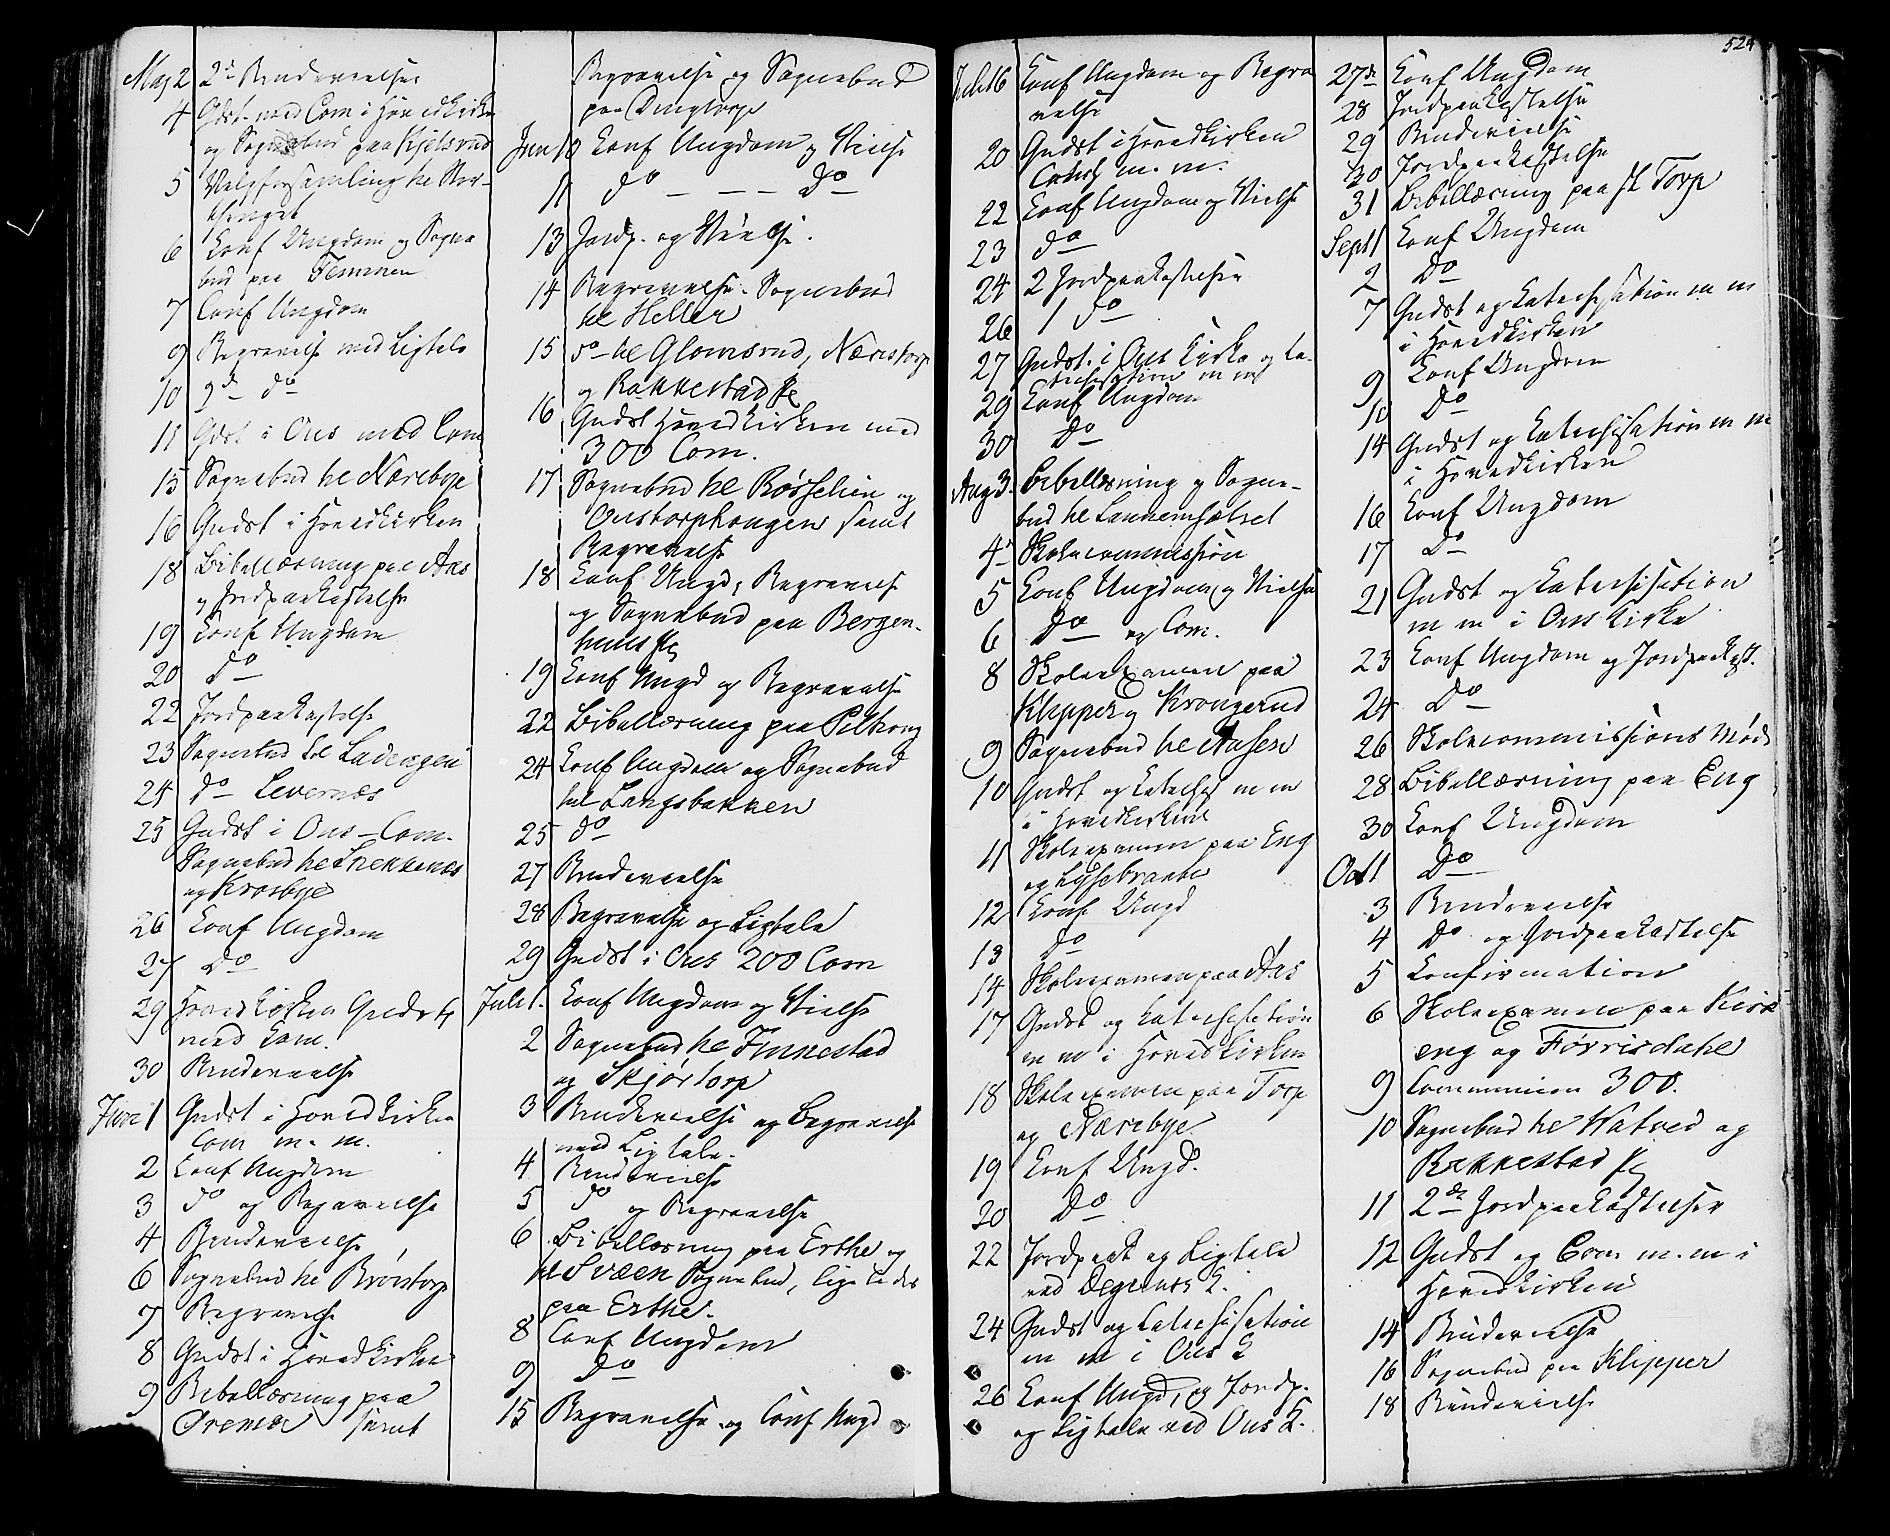 Maj 2 2de Brudevielser
4 Gdst. med Com i Hovedkirke
og Sognebud paa Kjelsrud
5 Valgforsamling til Stor-
thinget
6 Conf Ungdom og Sogne
bud paa Temmen
7 Conf Ungdom
9 Begravelse med Ligtale
10 2de do
11 Gdst i Ous med Com
15 Sognebud til Nærebye
16 Gudst i Hovedkirken
18 Bibellæsning paa Aas
og Jordpaakastelse
19 Conf Ungdom
20 do
22 Jordpaakastelse
23 Sognebud til Ladengen
24 do Levernæs
25 Gudst i Ous – Com.
Sognebud til Snekkenæs
og Krosbye
26 Conf Ungdom
27 Do
29 Hovedkirken Gudst
med Com.
30 Brudevielse
Juni 1 Gudst i Hovedkirken
Com m. m.
2 Conf Ungdom
3 do og Begravelse
4 Brudevielse
6 Sognebud til Brøstorp
7 Begravelse
8 Gudst i Hovedkirken
9 Bibellæsning paa
Öremør samt
Begravelse og Sognebud
paa Dingtorp
Juni 10 Conf Ungdom og Vielse
11 do – – – Do
13 Jordp. og Vielse.
14 Begravelse. Sognebud
til Heller
15 do til Glomsrud, Nærstorp
og Rakkestad Pg
16 Gudst Hovedkirken med
300 Com.
17 Sognebud til Røsselien og
Oustorphougen samt
Begravelse
18 Conf. Ungd, Begravelse
og Sognebud paa Bergen-
huus Pg
19 Conf Ungd og Begravelse
22 Bibellæsning paa Pilhoug
24 Conf Ungdom og Sognebud
til Langsbakken
25 do
27 Brudevielse
28 Begravelse og Ligtale
29 Gudst i Ous 200 Com
Juli 1. Conf Ungdom og Vielse
2 Sognebud til Finnestad
og Skjørtorp
3 Brudevielse og Begravelse
med Ligtale.
4 Brudevielse
5 do og Begravelse
6 Bibellæsning paa Erthe og
til Svæen Sognebud, ligeledes
paa Erthe.
8 Conf Ungdom
9 Do
15 Begravelse og Conf Ungd
524
Juli 16 Conf Ungdom og Begra
velse
20 Gudst i Hovedkirken
Catech m. m.
22 Conf Ungdom og Vielse
23 do
24 2 Jordpaakastelser
26 1 do
27 Gudst. i Ous Kirke og Ca-
techisation m m
29 Conf Ungdom
30 Do
Aug 3. Bibellæsning og Sogne-
bud til Lannemsætret
4de Skolecommission
5 Conf Ungdom og Vielse
6 Do og Com.
8 Skoleexamen paa
Klepper og Krougerud
9 Sognebud til Aasen
10 Gudst og Catechs m m
i Hovedkirken
11 Skoleexamen paa Eng
og Lysebraate
12 Conf Ungd
13 do
14 Skoleexamen paa Aas
17 Gudst og Catechisation
m m i Hovedkirken
18 Skoleexamen paa Torp
og Nærebye
19 Conf Ungd.
20 Do
22 Jordpaak og Ligtale
ved Degernes K.
24 Gudst og Catechisation
m m i Ous K
26 Conf Ungd, og Jordp.
og Ligtale ved Ous K.
27de Conf Ungdom
28 Jordpaakastelse
29 Brudevielse
30 Jordpaakastelse
31 Bibellæsning paa st Torp
Sept 1 Conf Ungdom
2 Do
7 Gudst og Catechisation m m
i Hovedkirken
9 Conf Ungdom
10 Do
14 Gudst og Catechisation m m
i Hovedkirken
16 Conf Ungdom
17 Do
21 Gudst og Catechisation
m m i Ous Kirke
23 Conf Ungdom og Jordpaakst.
24 Do
26 Skolecommissions Møde
28 Bibellæsning paa Eng
30 Conf Ungdom
Oct 1 Do
3 Brudevielse
4 Do og Jordpaakastelse
5 Confirmation
6 Skoleexamen paa Kirk
eng og Førrisdahl
9 Communion 300.
10 Sognebud til Hatved og
Rakkestad Pg
11 2de Jordpaakastelser
12 Gudst og Com m. m i
Hovedkirken
14 Brudevielse
16 Sognebud paa Klepper
18 Brudevielse